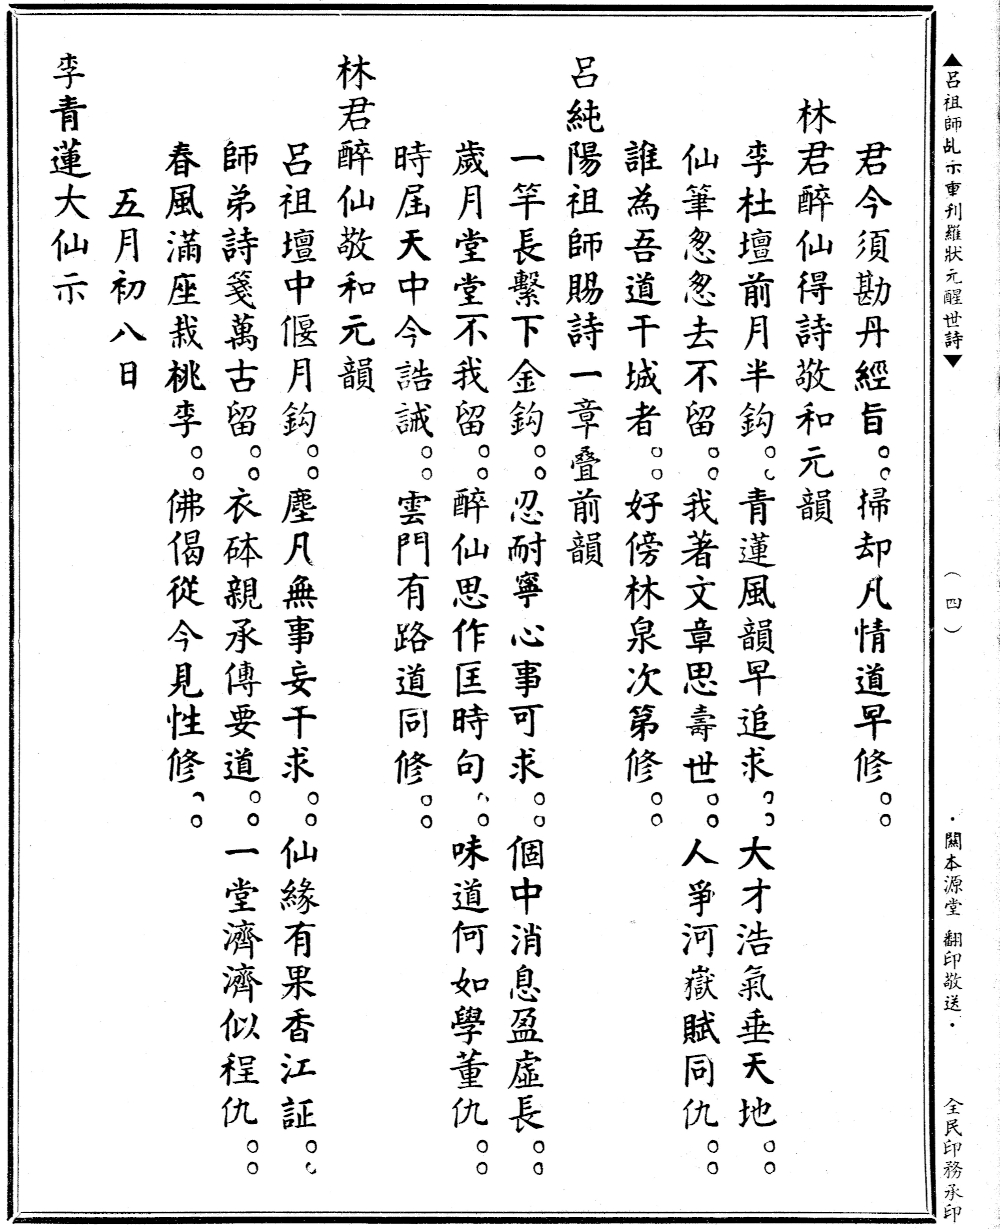 ▲呂祖師乩示重刊羅狀元醒世詩▼
（四）
・關本源堂 翻印敬送・
全民印務承印
君今須勘丹經旨。。掃却凡情道早修。。
林君醉仙得詩敬和元韻
李杜壇前月半鈎。。青蓮風韻早追求。。大才浩氣垂天地。。
仙筆怱怱去不留。。我著文章思壽世。。人爭河嶽賦同仇。。
誰為吾道干城者。。好傍林泉次第修。。
呂純陽祖師賜詩一章叠前韻
一竿長繫下金鈎。。忍耐寧心事可求。。個中消息盈虛長。。
歲月堂堂不我留。。醉仙思作匡時句。。味道何如學董仇。。
時屆天中今誥誡。。雲門有路道同修。。
林君醉仙敬和元韻
呂祖壇中偃月鈎。。塵凡無事妄干求。。仙緣有果香江証。。
師弟詩箋萬古留。。衣砵親承傳要道。。一堂濟濟似程仇。。
春風滿座栽桃李。。佛偈從今見性修。。
五月初八日
李青蓮大仙示